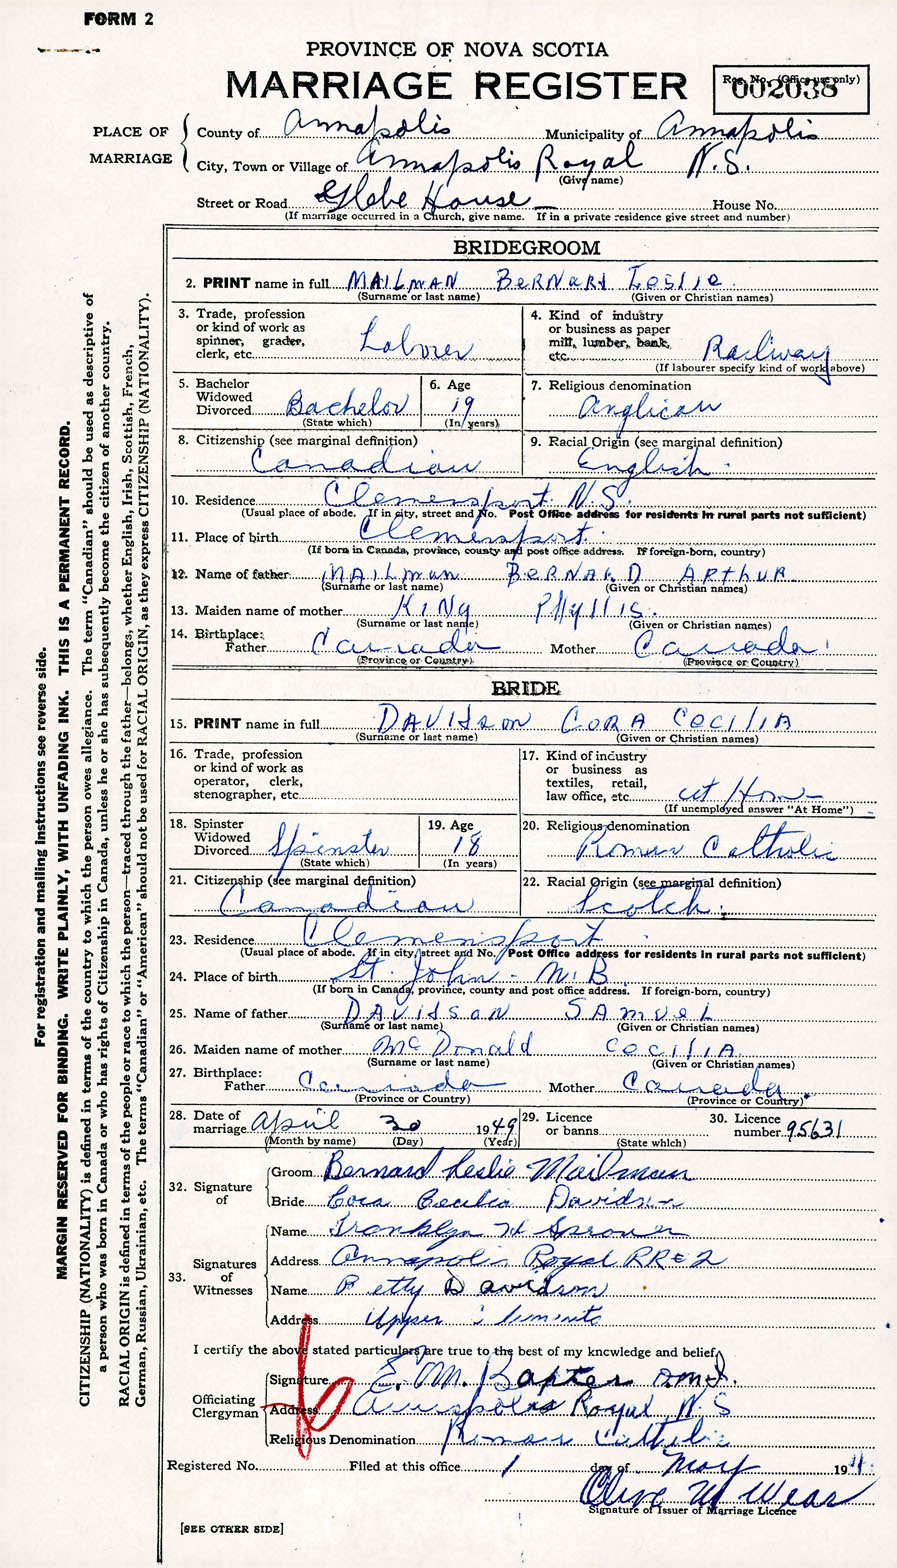 FORM 2
PROVINCE OF NOVA SCOTIA
MARRIAGE REGISTER
Reg. No. (Office use only)
002038
PLACE OF MARRIAGE
County of Annapolis Municipality of Annapolis
City, Town or Village of Annapolis Royal N.S.
(Give name)
Street or Road Glebe House House No.
(If marriage occurred in a Church, give name. If in a private residence give street and number)
BRIDEGROOM
2. PRINT name in full MAILMAN BERNARd LESLIE
(Surname or last name) (Given or Christian names)
3. Trade, profession or kind of work as spinner, grader, clerk, etc. Laborer
4. Kind of industry or business as paper mill, lumber, bank, etc. Railway
(If labourer specify kind of work above)
5. Bachelor Widowed Divorced Bachelor
(State which)
6. Age 19
(In years)
7. Religious denomination Anglican
8. Citizenship (see marginal definition) Canadian
9. Racial Origin (see marginal definition) English
10. Residence Clementsport N.S.
(Usual place of abode. If in city, street and No. Post Office address for residents in rural parts not sufficient)
11. Place of birth Clementsport
(If born in Canada, province, county and post office address. If foreign-born, country)
12. Name of father MAILMAN BERNARD ARTHUR
(Surname or last name) (Given or Christian names)
13. Maiden name of mother KING PHYLLIS
(Surname or last name) (Given or Christian names)
14. Birthplace: Father Canada Mother Canada
(Province or Country) (Province or Country)
BRIDE
15. PRINT name in full DAVIDSON CORA CECILIA
(Surname or last name) (Given or Christian names)
16. Trade, profession or kind of work as operator, clerk, stenographer, etc.
17. Kind of industry or business as textiles, retail, law office, etc. at Home
(If unemployed answer "At Home")
18. Spinster Widowed Divorced Spinster
(State which)
19. Age 18
(In years)
20. Religious denomination Roman Catholic
21. Citizenship (see marginal definition) Canadian
22. Racial Origin (see marginal definition) Scotch
23. Residence Clementsport
(Usual place of abode. If in city, street and No. Post Office address for residents in rural parts not sufficient)
24. Place of birth St. John - N.B
(If born in Canada, province, county and post office address. If foreign-born, country)
25. Name of father DAVIDSON SAMUEL
(Surname or last name) (Given or Christian names)
26. Maiden name of mother McDonald CECILIA
(Surname or last name) (Given or Christian names)
27. Birthplace: Father Canada Mother Canada
(Province or Country) (Province or Country)
28. Date of marriage April 30 1949
(Month by name) (Day) (Year)
29. Licence or banns
(State which)
30. Licence number 95631
32. Signature of
Groom Bernard Leslie Mailman
Bride Cora Cecilia Davidson
33. Signatures of Witnesses
Name Franklyn H
Address Annapolis Royal RR#2
Name Betty Davidson
Address Upper Clements
I certify the above stated particulars are true to the best of my knowledge and belief,
Officiating Clergyman
Signature E. M. Baxter
Address Annapolis Royal N.S
Religious Denomination Roman Catholic
Registered No. Filed at this office 1 day of May 19
Olive M Wear
Signature of Issuer of Marriage Licence
[SEE OTHER SIDE]
For registration and mailing instructions see reverse side.
MARGIN RESERVED FOR BINDING. WRITE PLAINLY, WITH UNFADING INK. THIS IS A PERMANENT RECORD.
CITIZENSHIP (NATIONALITY) is defined in terms of the country to which the person owes allegiance. The term "Canadian" should be used as descriptive of
a person who was born in Canada or who has rights of Citizenship in Canada, unless he or she has subsequently become the citizen of another country.
RACIAL ORIGIN is defined in terms of the people or race to which the person—traced through the father—belongs, whether English, Irish, Scottish, French,
German, Russian, Ukrainian, etc. The terms "Canadian" or "American" should not be used for RACIAL ORIGIN, as they express CITIZENSHIP (NATIONALITY).